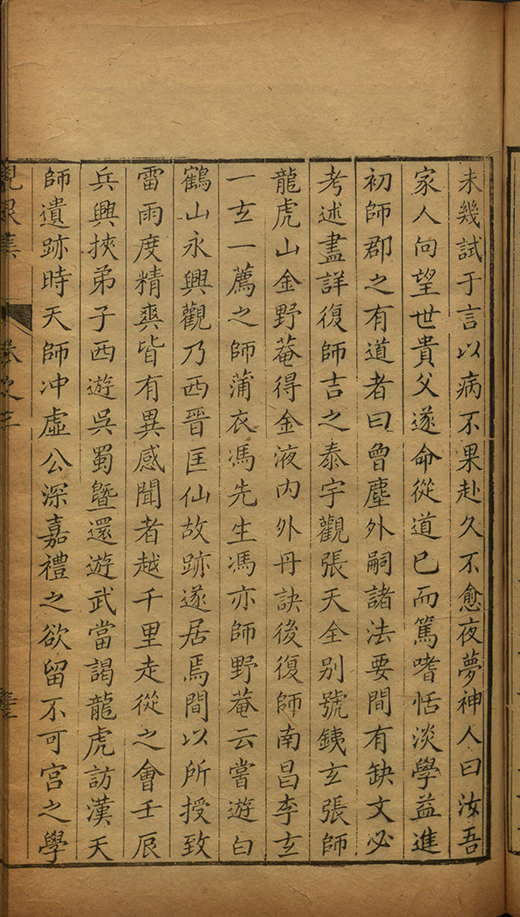 未幾試于言以病不果赴久不愈夜夢神人曰汝吾
家人向望世貴父遂命從道已而篤嗜恬淡學益進
初師郡之有道者曰曾塵外嗣諸法要間有缺文必
考述盡詳復師吉之泰宇觀張天全别號鐵玄張師
龍虎山金野菴得金液内外丹訣後復師南昌李玄
一玄一薦之師蒲衣馮先生馮亦師野菴云嘗遊白
鶴山永興觀乃西晋匡仙故跡遂居焉間以所授致
雷雨度精爽皆有異感聞者越千里走從之會壬辰
兵興挾弟子西遊吳蜀曁還遊武當謁龍虎訪漢天
師遺跡時天師冲虛公深嘉禮之欲留不可宮之學
峴泉集 卷之三